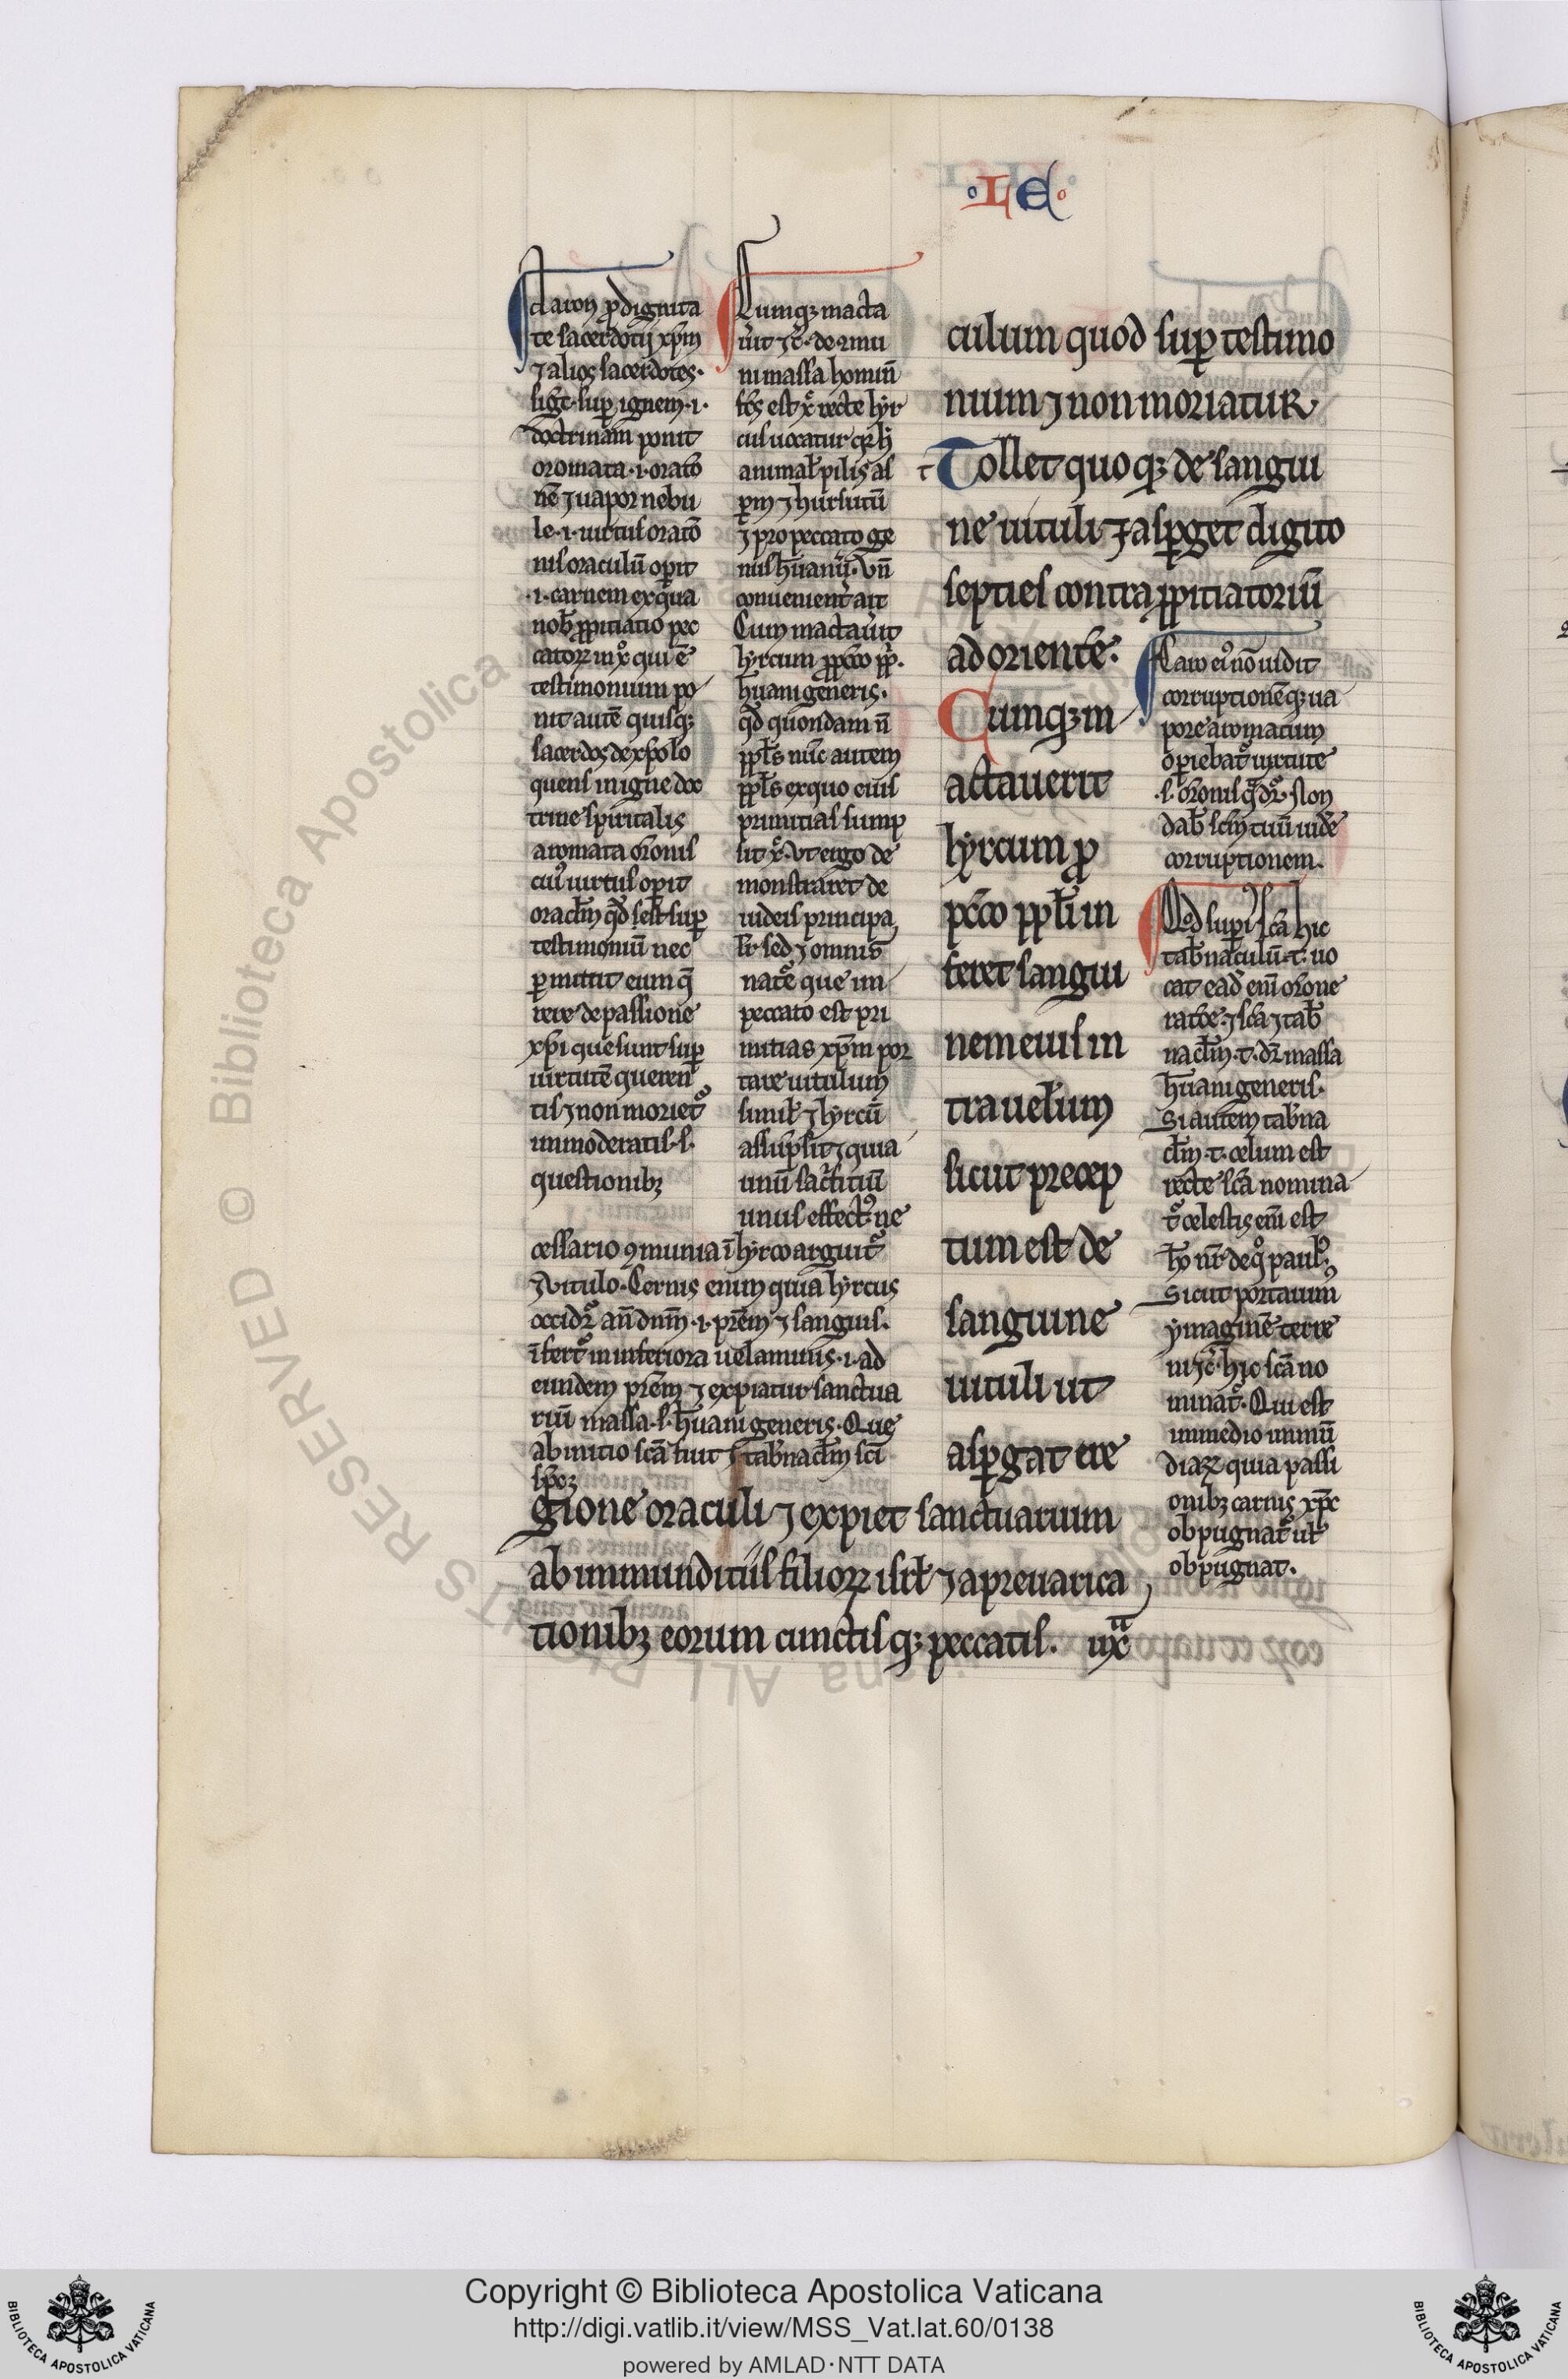 ·LE·
Aaron ꝓ dignita
te sacerdotij xp̄m
⁊ alios sacerdotes.
sig̅t. sup ignem .i.
doctrinam ponit
oromata .i. orat̄o
nē ⁊ uapor nebu
le .i. uirtus orat̄o
nis oraculū opit
.i. carnem ex qua
nob̄ ꝓpitiatio pec
catoꝝ in xº qui ē
testimonium po
nit autē quisqꝫ
sacerdos de xp̄o lo
quens in igne doc
trine spiritalis
aromata or̄onis
cuiꝰ uirtus opit
oracl̄m qd̄ est sup
testimoniū nec
pmittit eum q̄
rere de passione
xp̄i que sunt sup
uirtutē queren
tis ⁊ non morietᷣ
immoderatis .s.
questionibꝫ
Cumqꝫ macta
u̅it ⁊c̄. de 9mu
ni massa homin̄
fc̄s est xᷣ recte hyr
cus uocatur qꝛ h̄
animal̄ pilis as
pm ⁊ hirsutū
⁊ pro peccato ge
nis hūanū. Vn̄
conuenient̄ ait
Cum mactau̅it
hyrcum ꝓ pc̄co ppl̄i.
hūani generis.
qd̄ quondam n̄
ppl̄s nūc autem
ppl̄s ex quo eius
primitias sump
sit xᷣ. Vt ergo de
monstraret de
iudeis principa
lit̄ sed ⁊ omnis
natᷣe que in
peccato est pri
mitias xp̄m por
tare uitulum
simil̄ ⁊ hyrcū
assūpsit ⁊ quia
unū sac̄fitiū
unus effectꝰ ne
cessario 9munia ī hyrco arguit̄
⁊ uitulo. Cernis enim quia hyrcus
occidit̄ an̄ dn̄m .i. prēm ⁊ sanguis.
īfertᷣ in inferiora uelaminis .i. ad
eundem prēm ⁊ expiatur sanctua
riū massa .s. hūani generis. Que
ab initio scā fuit ⁊ tab̄nacl̄m sc̄i
sp̄c̄
culum quod sup testimo
nium ⁊ non moriatur
t Tollet quoqꝫ de sangui
ne uituli ⁊ aspget digito
septies contra ꝓpitiatoriū
ad orientē.
Cumqꝫ m
actauerit
hyrcum ꝓ
pc̄co ppl̄i in
feret sangui
nem eius in
tra uelum
sicut precep
tum est de
sanguine
uituli ut
aspgat ere
gione oraculi ⁊ expiet sanctuarium
ab inmunditiis filioꝝ isrl̄ ⁊ a preuarica
tionibꝫ eorum cunctisqꝫ peccatis. iuxᵃ
Caro eiꝰ nō uidit
corruptionē qꝫ ua
pore aromatum
opiebatᷣ uirtute
.s. or̄onis q̄ dr̄. Non
dab̄ sc̄m tuū uidē
corruptionem.
Qd̄ supi scā hic
tab̄naculū .t. uo
cat ead̄ eni̅ or̄one
rat̄oe. ⁊ scā ⁊ tab̄
nacl̄m .t. dr̄ massa
hūani generis.
Si autem tab̄na
cl̄m .t. celum est
recte scā nomina
tᷣ celestis eni̅ est
hō nr̄ de qº paulꝰ
Sicut portauim
ymaginē terre
ni ⁊c̄. hic scā no
minatᷣ. Qui est
in medio inmū
diaꝝ quia passi
onibꝫ carnis xp̄c
obpugnat̄ ul̄
obpugnat.
Copyright © Biblioteca Apostolica Vaticana
http://digi.vatlib.it/view/MSS_Vat.lat.60/0138
powered by AMLAD·NTT DATA
BIBLIOTECA APOSTOLICA VATICANA
BIBLIOTECA APOSTOLICA VATICANA